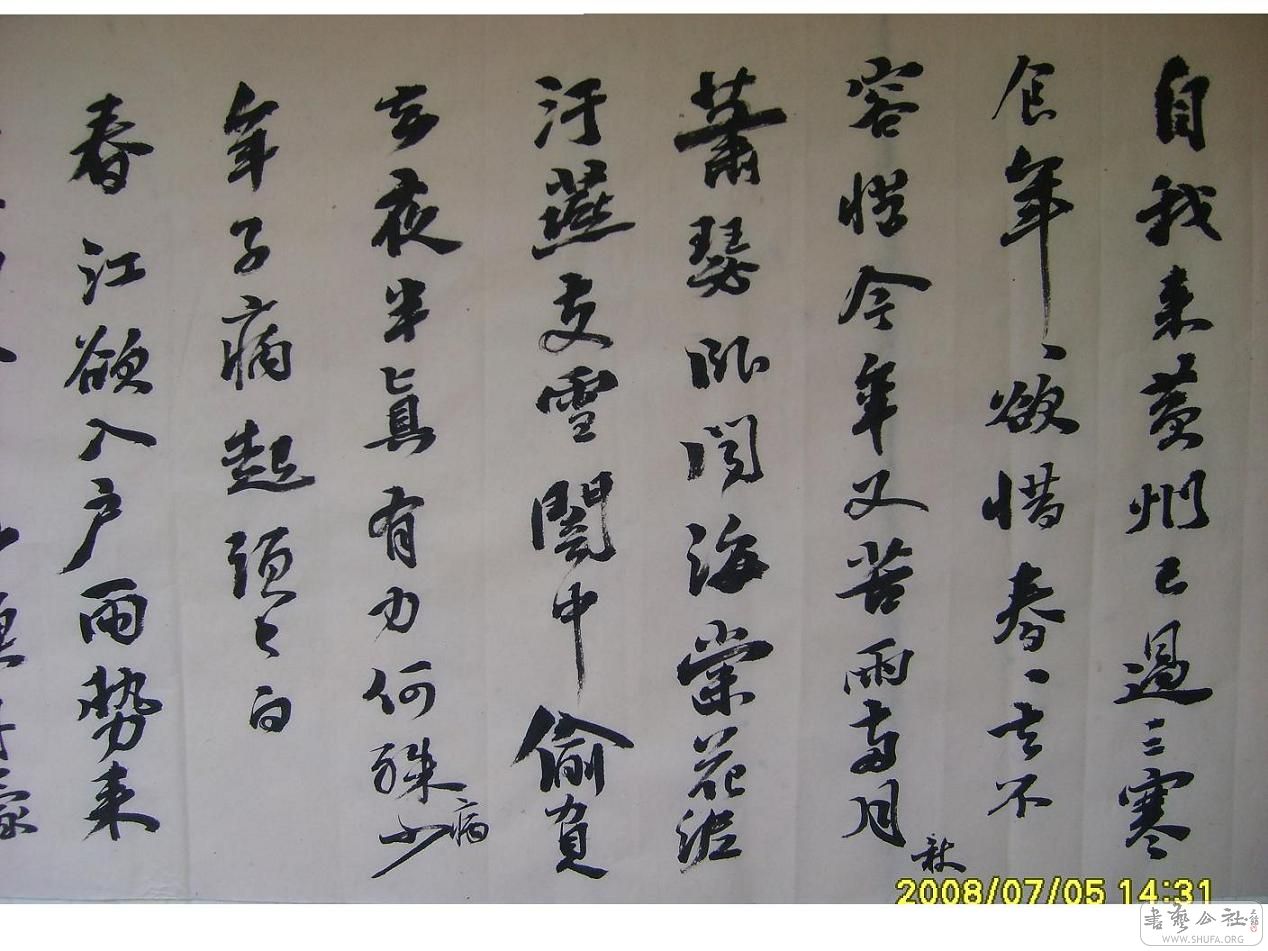 自我来黄州已過三寒
食年、欲惜春、去不
容惜今年又苦雨两月
秋
蕭瑟卧聞海棠花泥
汙燕支雪闇中偷負
去夜半真有力何殊少
病
年子病起須已白
春江欲入户雨势来
2008/07/05 14:31
書藝公社
WWW.SHUFA.ORG